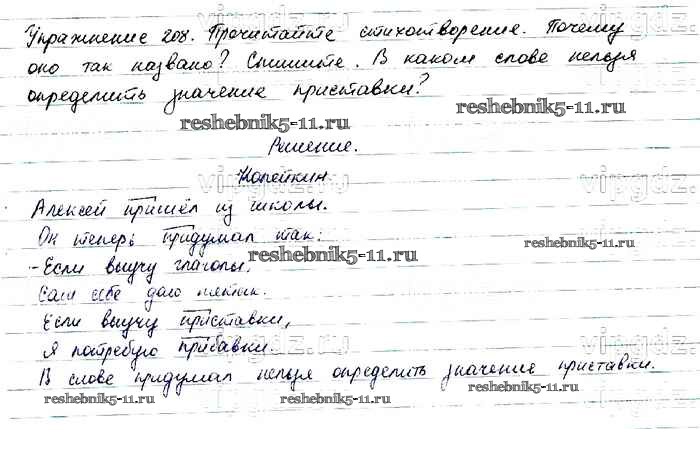 vipgdz.ru
Упражнение 208. Прочитайте стихотворение. Почему
оно так названо? Спишите. В каком слове нельзя
определить значение приставки?
reshebnik5-11.ru
reshebnik5-11.ru
Решение.
Копейкин.
vipgdz.ru
vipgdz.
Алексей пришёл из школы.
Он теперь придумал так:
reshebnik5-11.ru
reshebnik5-11.ru
- Если выучу глаголы,
Сам себе даю пятак.
Если выучу приставки,
Я потребую прибавки.
vipgdz.ru
vipgdz.ru
В слове придумал нельзя определить значение приставки.
reshebnik5-11.ru
reshebnik5-11.ru
reshebnik5-11.ru